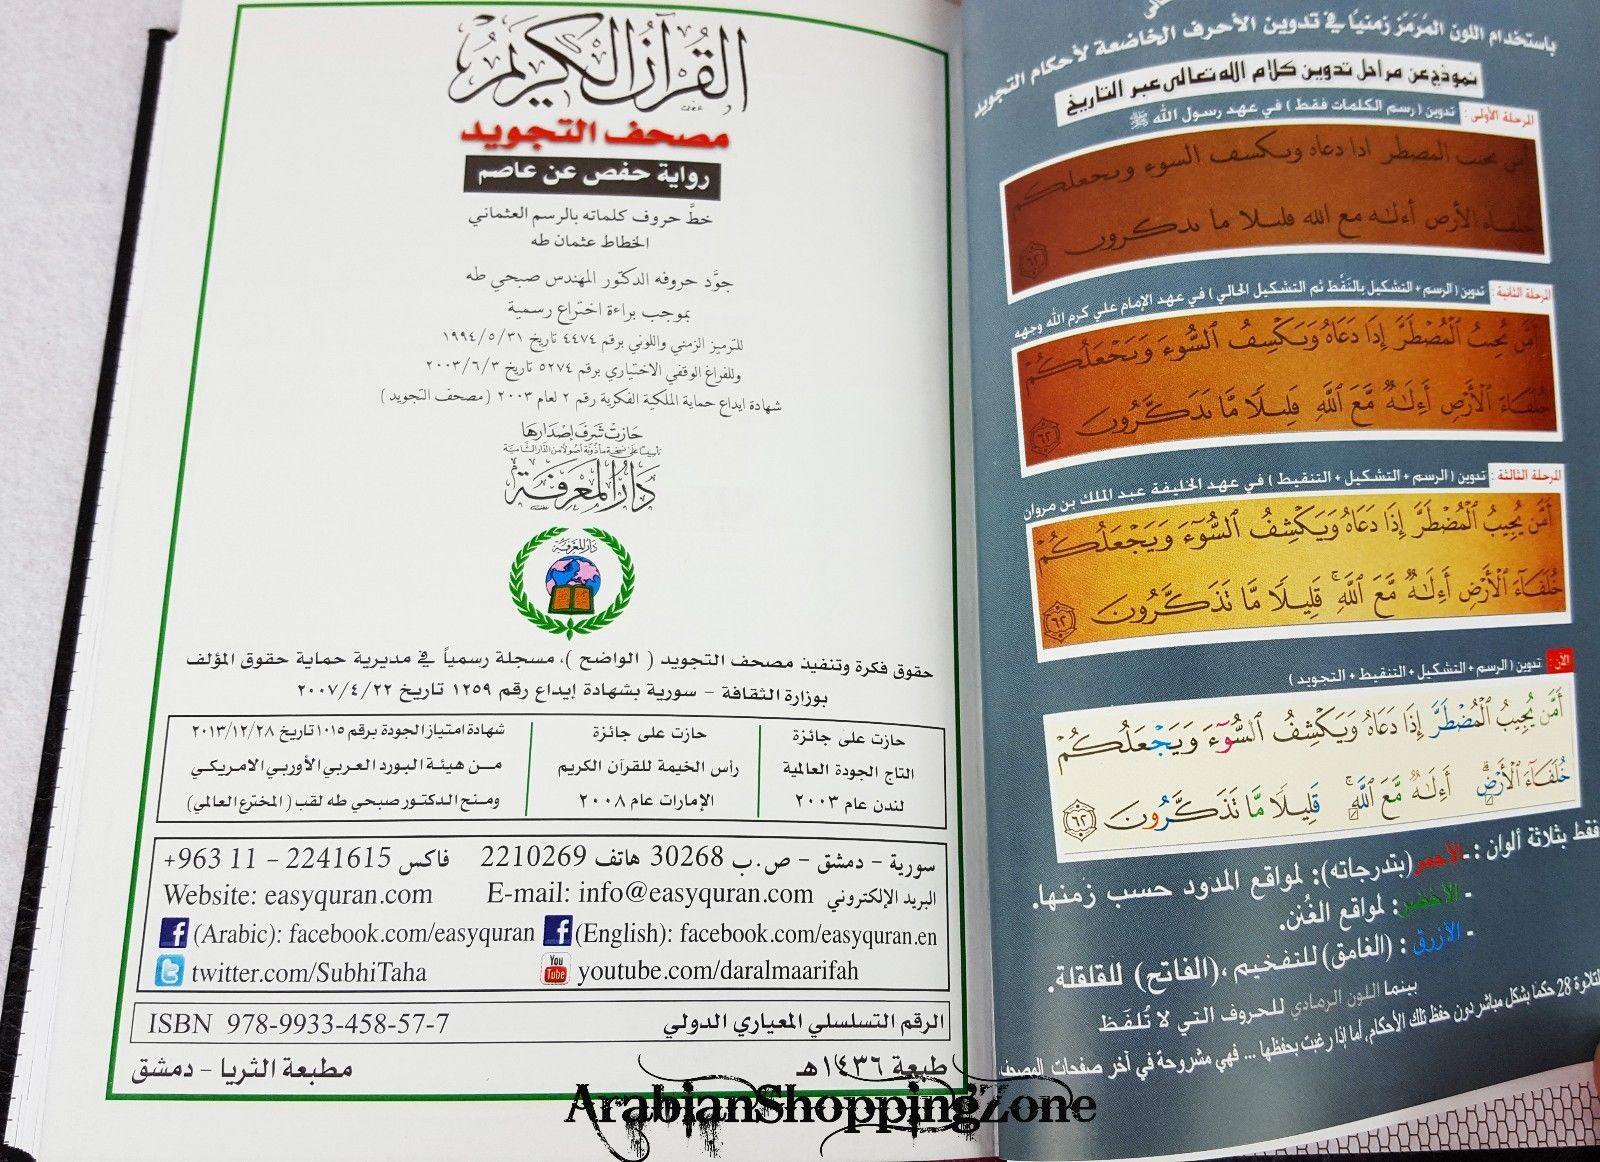 القرآن الكريم
مصحف التجويد
رواية حفص عن عاصم
خطَّ حروف كلماته بالرسم العثماني
الخطاط عثمان طه
جوَّد حروفه الدكتور المهندس صبحي طه
بموجب براءة اختراع رسمية
للترميز الزمني واللوني برقم ٤٤٧٤ تاريخ ١٩٩٤/٥/٣١
وللفراغ الوقفي الاختياري برقم ٥٢٧٤ تاريخ ٢٠٠٣/٦/٣
شهادة ايداع حماية الملكية الفكرية رقم ٢ لعام ٢٠٠٣ (مصحف التجويد)
حازت شرف إصدارها
دار المعرفة
دار المعرفة
حقوق فكرة وتنفيذ مصحف التجويد ( الواضح )، مسجلة رسمياً في مديرية حماية حقوق المؤلف
بوزارة الثقافة - سورية بشهادة إيداع رقم ١٢٥٩ تاريخ ٢٠٠٧/٤/٢٢
حازت على جائزة
التاج الجودة العالمية
لندن عام ٢٠٠٣
حازت على جائزة
رأس الخيمة للقرآن الكريم
الإمارات عام ٢٠٠٨
شهادة امتياز الجودة برقم ١٠١٥ تاريخ ٢٠١٣/١٢/٢٨
من هيئة البورد العربي الأوربي الامريكي
ومنح الدكتور صبحي طه لقب (المخترع العالمي)
سورية - دمشق - ص.ب 30268 هاتف 2210269 فاكس 2241615 - 11 963+
البريد الإلكتروني E-mail: info@easyquran.com Website: easyquran.com
(Arabic): facebook.com/easyquran (English): facebook.com/easyquran.en
twitter.com/SubhiTaha You Tube youtube.com/daralmaarifah
الرقم التسلسلي المعياري الدولي ISBN 978-9933-458-57-7
طبعة ١٤٣٦هـ مطبعة الثريا - دمشق
باستخدام اللون المُرمَّز زمنياً في تدوين الأحرف الخاضعة لأحكام التجويد
نموذج عن مراحل تدوين كلام الله تعالى عبر التاريخ
المرحلة الأولى : تدوين ( رسم الكلمات فقط ) في عهد رسول الله ﷺ
امں ىحىب المصطر ادا دعاه وىكسف السوء وىحعلكم
حلفاء الأرص أءلـه مع الله ڡلىلا ما ىدكروں ٦٢
المرحلة الثانية : تدوين ( الرسم + التشكيل بالنَقْط ثم التشكيل الحالي ) في عهد الإمام علي كرم الله وجهه
أمَّں ىُحىبُ الْمُصْطَرَّ إِدَا دَعَاهُ وَىَكْسِفُ السُّوءَ وَىَحْعَلُكُمْ
حُلَفَاءَ الْأَرْصِ أَءِلَـٰهٌ مَّعَ اللَّهِ ڡَلِىلًا مَّا ىَدَكَّرُوںَ ٦٢
المرحلة الثالثة : تدوين ( الرسم + التشكيل + التنقيط ) في عهد الخليفة عبد الملك بن مروان
أَمَّن يُجِيبُ الْمُضْطَرَّ إِذَا دَعَاهُ وَيَكْشِفُ السُّوءَ وَيَجْعَلُكُمْ
خُلَفَاءَ الْأَرْضِ أَءِلَـٰهٌ مَّعَ اللَّهِ ۚ قَلِيلًا مَّا تَذَكَّرُونَ ٦٢
الآن : تدوين ( الرسم + التشكيل + التنقيط + التجويد )
أَمَّن يُجِيبُ الْمُضْطَرَّ إِذَا دَعَاهُ وَيَكْشِفُ السُّوءَ وَيَجْعَلُكُمْ
خُلَفَاءَ الْأَرْضِ ۗ أَءِلَـٰهٌ مَّعَ اللَّهِ ۚ قَلِيلًا مَّا تَذَكَّرُونَ ٦٢
فقط بثلاثة ألوان : - الأحمر (بتدرجاته): لمواقع المدود حسب زمنها.
- الأخضر : لمواقع الغُنن.
- الأزرق : (الغامق) للتفخيم ، (الفاتح) للقلقلة.
بينما اللون الرمادي للحروف التي لا تُلفَظ
التلاوة 28 حكماً بشكل مباشر دون حفظ تلك الأحكام، أما إذا رغبت بحفظها ... فهي مشروحة في آخر صفحات المصحف
ArabianShoppingZone